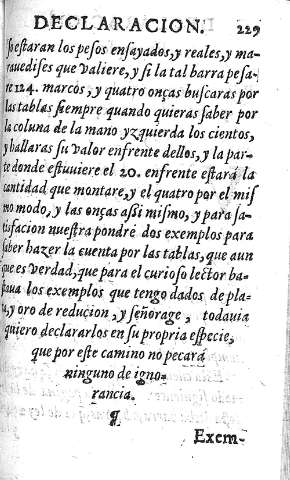 DECLARACION. 229
so estaran los pesos ensayados, y reales, y ma-
rauedises que valiere, y si la tal barra pesa-
re 124. marcos, y quatro onças buscaras por
las tablas siempre quando quieras saber por
la coluna de la mano yzquierda los cientos,
y hallaras su valor enfrente dellos, y la par-
te donde estuuiere el 20. enfrente estará la
cantidad que montare, y el quatro por el mis
mo modo, y las onças assi mismo, y para sa-
tisfacion nuestra pondrè dos exemplos para
saber hazer la cuenta por las tablas, que aun
que es verdad, que para el curioso lector ba-
staua los exemplos que tengo dados de pla-
ta, y oro de reducion, y señorage, todauia
quiero declararlos en su propria especie,
que por este camino no pecará
ninguno de igno-
rancia.
¶
Exem-